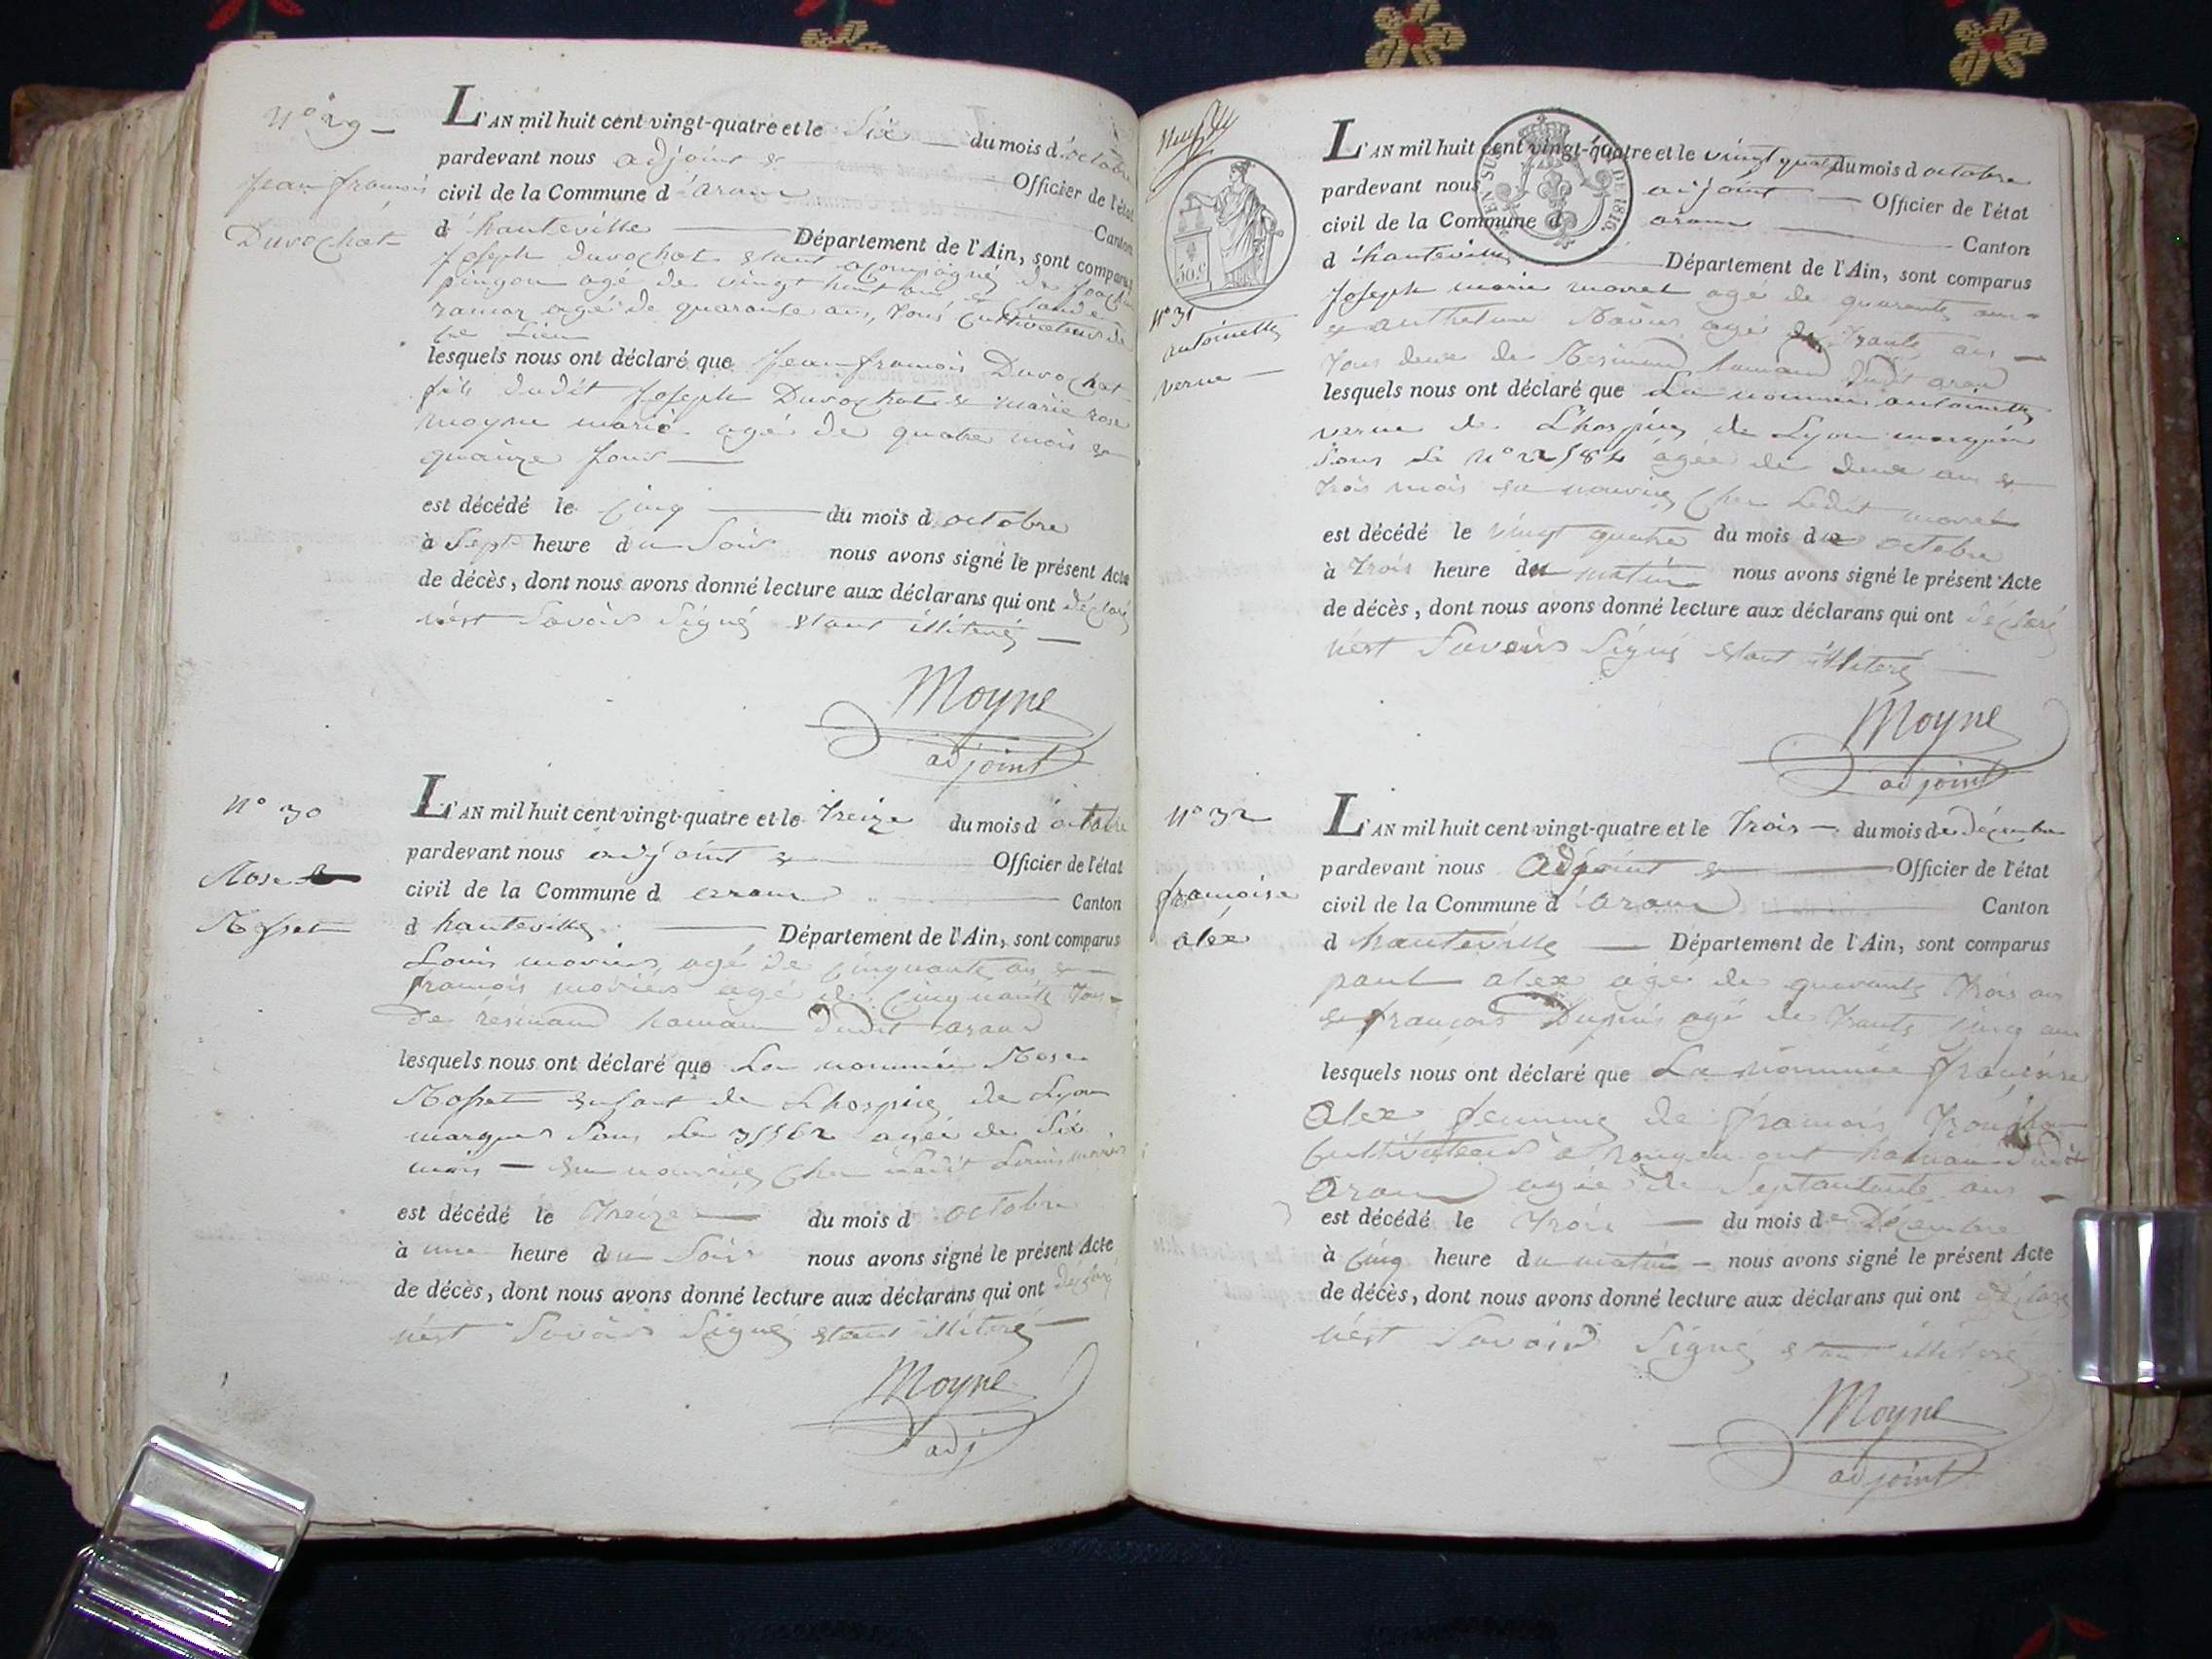 N° 29
Jean françois
Duvochat
L'AN mil huit cent vingt-quatre et le Six du mois d'octobre
pardevant nous adjoint & Officier de l'état
civil de la Commune d'aranc Canton
d'hauteville Département de l'Ain, sont comparus
Joseph Duvochat étant acompagné de
pingon agé de vingt huit ans, & Claude
ramaz agé de quarante ans, tous Cultivateurs de
ce Lieu
lesquels nous ont déclaré que Jean françois Duvochat
fils dudit Joseph Duvochat & marie rose
moyne marié agé de quatre mois &
quainze jour
est décédé le Cinq du mois d octobre
à Sept heure du Soir nous avons signé le présent Acte
de décès, dont nous avons donné lecture aux déclarans qui ont déclaré
n'est Savoir Signé étant illiteré
Moyne
adjoint
N° 30
Rose
Rosset
L'AN mil huit cent vingt-quatre et le Treize du mois d'octobre
pardevant nous adjoint & Officier de l'état
civil de la Commune d aranc Canton
d hauteville Département de l'Ain, sont comparus
Louis agé de cinquante ans &
françois agé de Cinquante tous
de résinand hamau dudit aranc
lesquels nous ont déclaré que La nommée Rose
Rosset enfant de L'hospice de Lyon
marqué Sous Le agée de Six
mois en nourice Chez Ledit Louis
est décédé le Treize du mois d octobre
à une heure du Soir nous avons signé le présent Acte
de décès, dont nous avons donné lecture aux déclarans qui ont déclaré
n'est Savoir Signé étant illiteré
Moyne
adj
EN SUS DE 1816
50.C
N° 31
antoinette
verne
L'AN mil huit cent vingt-quatre et le vingt quatre du mois d octobre
pardevant nous adjoint Officier de l'état
civil de la Commune d aranc Canton
d'hauteville Département de l'Ain, sont comparus
Joseph marie morel agé de quarente ans
& anthelme agé de Trante ans
Tous deux de Resinand hamau dudit aranc
lesquels nous ont déclaré que La nommée antoinette
verne de L'hospice de Lyon marquée
Sous Le N° agée de deux ans &
trois mois en nourice Chez Ledit morel
est décédé le vingt quatre du mois d octobre
à Trois heure du matin nous avons signé le présent Acte
de décès, dont nous avons donné lecture aux déclarans qui ont déclaré
n'est Savoir Signé étant illiteré
Moyne
adjoint
N° 32
françoise
alex
L'AN mil huit cent vingt-quatre et le Trois du mois de décembre
pardevant nous adjoint & Officier de l'état
civil de la Commune d'aranc Canton
d hauteville Département de l'Ain, sont comparus
paul alex agé de quarante Trois ans
& françois Dupuis agé de Trante cinq ans
lesquels nous ont déclaré que La nommée françoise
alex femme de françois
Cultivateur à hamau dudit
aranc agée de ans
est décédé le Trois du mois de Décembre
à Cinq heure du matin nous avons signé le présent Acte
de décès, dont nous avons donné lecture aux déclarans qui ont déclaré
n'est Savoir Signé étant illiteré
Moyne
adjoint